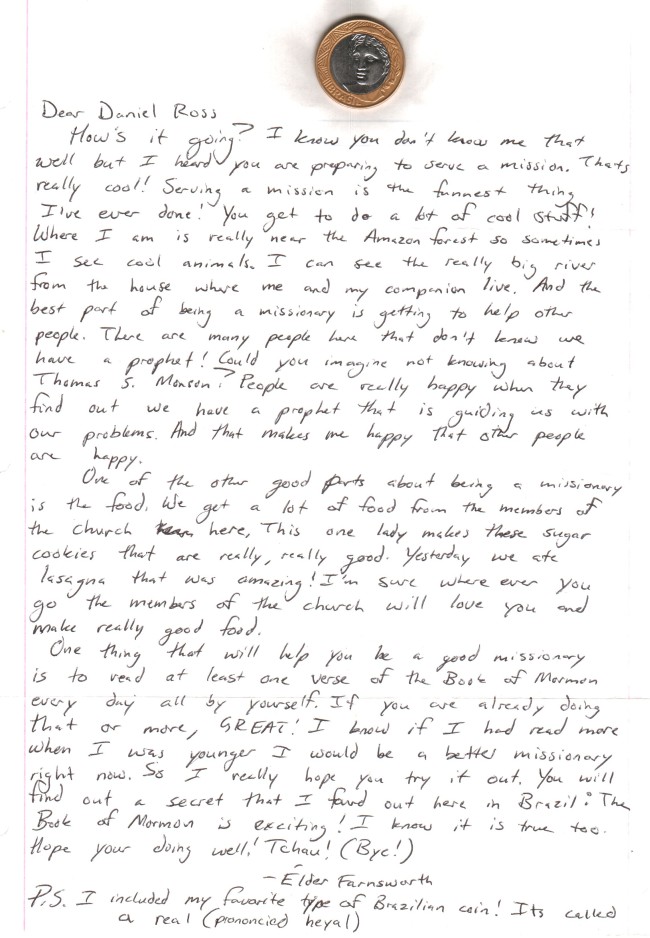 BRASIL
Dear Daniel Ross
How's it going? I know you don't know me that
well but I heard you are preparing to serve a mission. Thats
really cool! Serving a mission is the funnest thing
I've ever done! You get to do a lot of cool stuff!
Where I am is really near the Amazon forest so sometimes
I see cool animals. I can see the really big river
from the house where me and my companion live. And the
best part of being a missionary is getting to help other
people. There are many people here that don't know we
have a prophet! Could you imagine not knowing about
Thomas S. Monson? People are really happy when they
find out we have a prophet that is guiding us with
our problems. And that makes me happy that other people
are happy.
One of the other good parts about being a missionary
is the food. We get a lot of food from the members of
the church here, This one lady makes these sugar
cookies that are really, really good. Yesterday we ate
lasagna that was amazing! I'm sure where ever you
go the members of the church will love you and
make really good food.
One thing that will help you be a good missionary
is to read at least one verse of the Book of Mormon
every day all by yourself. If you are already doing
that or more, GREAT! I know if I had read more
when I was younger I would be a better missionary
right now. So I really hope you try it out. You will
find out a secret that I found out here in Brazil: The
Book of Mormon is exciting! I know it is true too.
Hope your doing well! Tchau! (Bye!)
- Elder Farnsworth
P.S. I included my favorite type of Brazilian coin! Its called
a real (prononcied heyal)